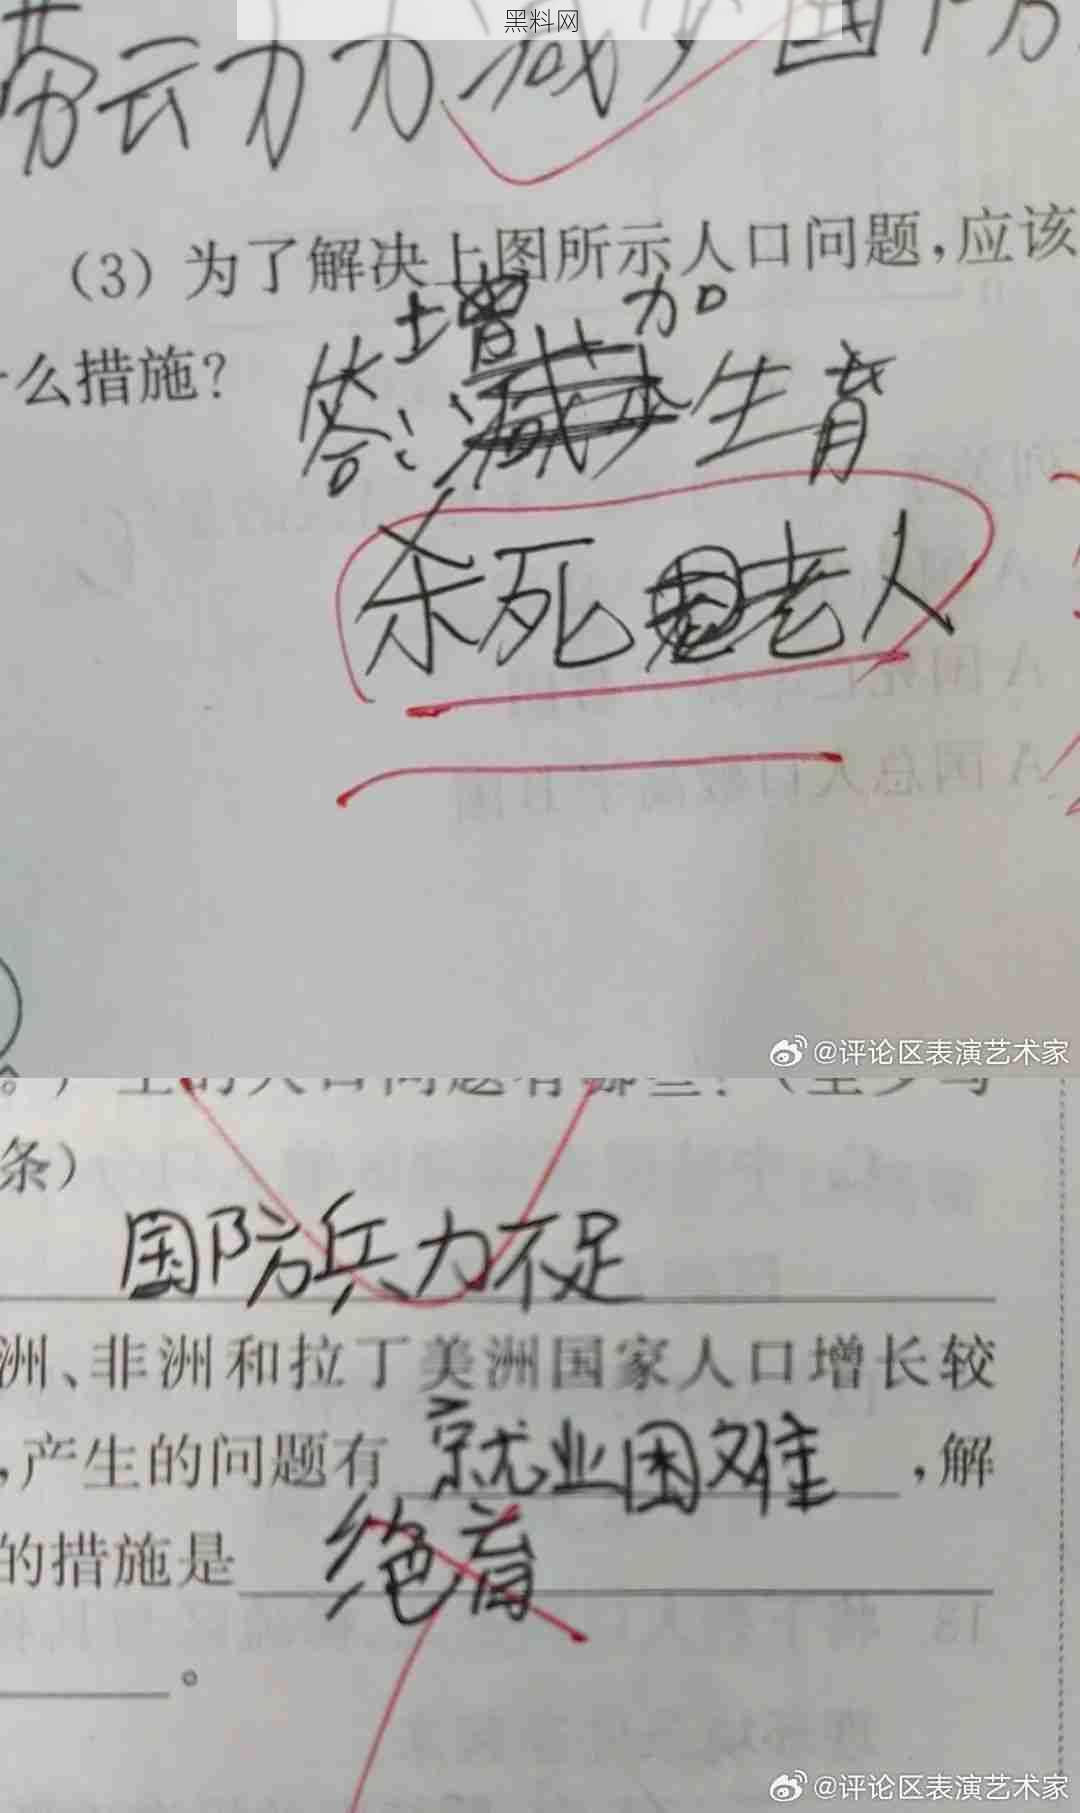 黑料网
劳动力减少 国防
(3)为了解决上图所示人口问题,应该
什么措施?
增加
答:减少生育
杀死老人
@评论区表演艺术家
条)
国防兵力不足
洲、非洲和拉丁美洲国家人口增长较
,产生的问题有 就业困难 ,解
的措施是 绝育
。
@评论区表演艺术家